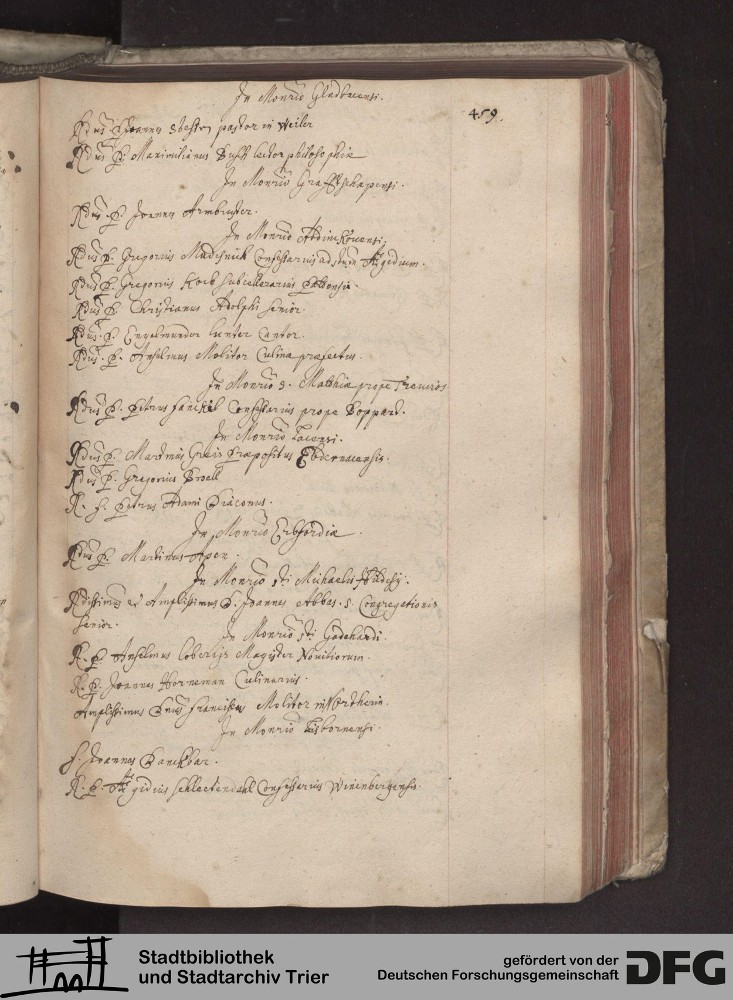 In Monrio Gladbacensi.
459.
Rdus Joannes pastor in Weiler
Rdus P. Maximilianus Busch lector philosophiæ
In Monrio Graffschapensi.
Rdus P. Joannes Armbruster.
In Monrio Abdinckhovensi;
Rdus P. Gregorius Confessarius ad stum Ægidium.
Rdus P. Gregorius Koch subcellerarius
Rdus P. Christianus Adolphi senior.
Rdus P. Lenter Cantor.
Rdus P. Anselmus Molitor Culinæ præfectus.
In Monrio S. Matthiæ prope Treviros
Rdus P. Petrus Confessarius prope Boppard.
In Monrio Lacensi.
Rdus P. Martinus Greis Præpositus
Rdus P. Gregorius Broell
R. f. Petrus Adami Diaconus.
In Monrio Erbfordiæ.
Rdus P. Martinus
In Monrio sti Michaelis
Rdissimus et Amplissimus D. Joannes Abbas. s. Congregationis
senior.
In Monrio sti Godehardi.
R. P. Anselmus Magister Novitiorum.
R. P. Joannes Horneman Culinarius.
Amplissimus Dnus Franciscus Molitor in Northeim.
In Monrio Lisbornensi.
f. Joannes Banckbar.
R. P. Ægidius Confessarius
Stadtbibliothek
und Stadtarchiv Trier
gefördert von der
Deutschen Forschungsgemeinschaft
DFG